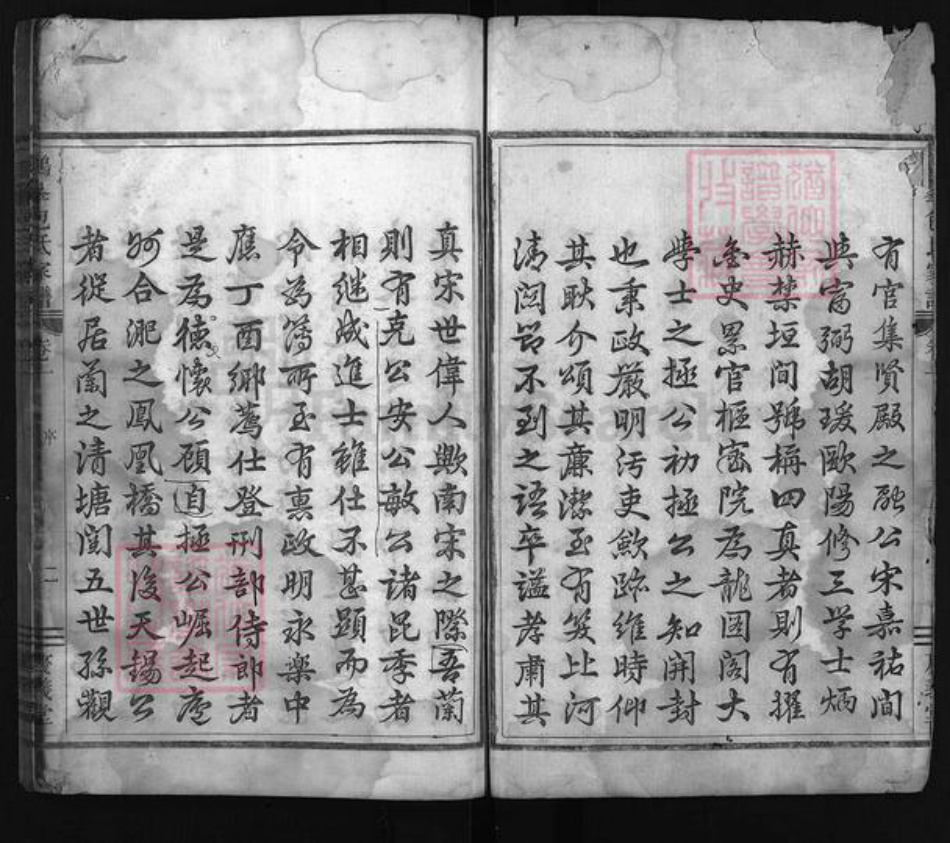 有官集賢殿之融公宋嘉祐間
與富弼胡瑗歐陽修三学士炳
赫禁垣间號稱四真者則有擢
史累官樞密院為龍图阁大
學士之拯公初拯公之知開封
也秉政嚴明污吏歛跡維時仰
其耿介頌其廉潔至有笑比河
清関節不到之語卒謚孝肅其
真宋世偉人歟南宋之際吾蘭
則有克公安公敏公諸昆季者
相继成進士雖仕不甚顕而為
令為簿所至有裏政明永楽中
應丁酉鄉薦仕登刑部侍郎者
是為德懷公頎自拯公崛起廬
州合淝之鳳凰橋其後天錫公
者從居蘭之清塘閨五世孫觀
包氏家譜
卷一
序
二